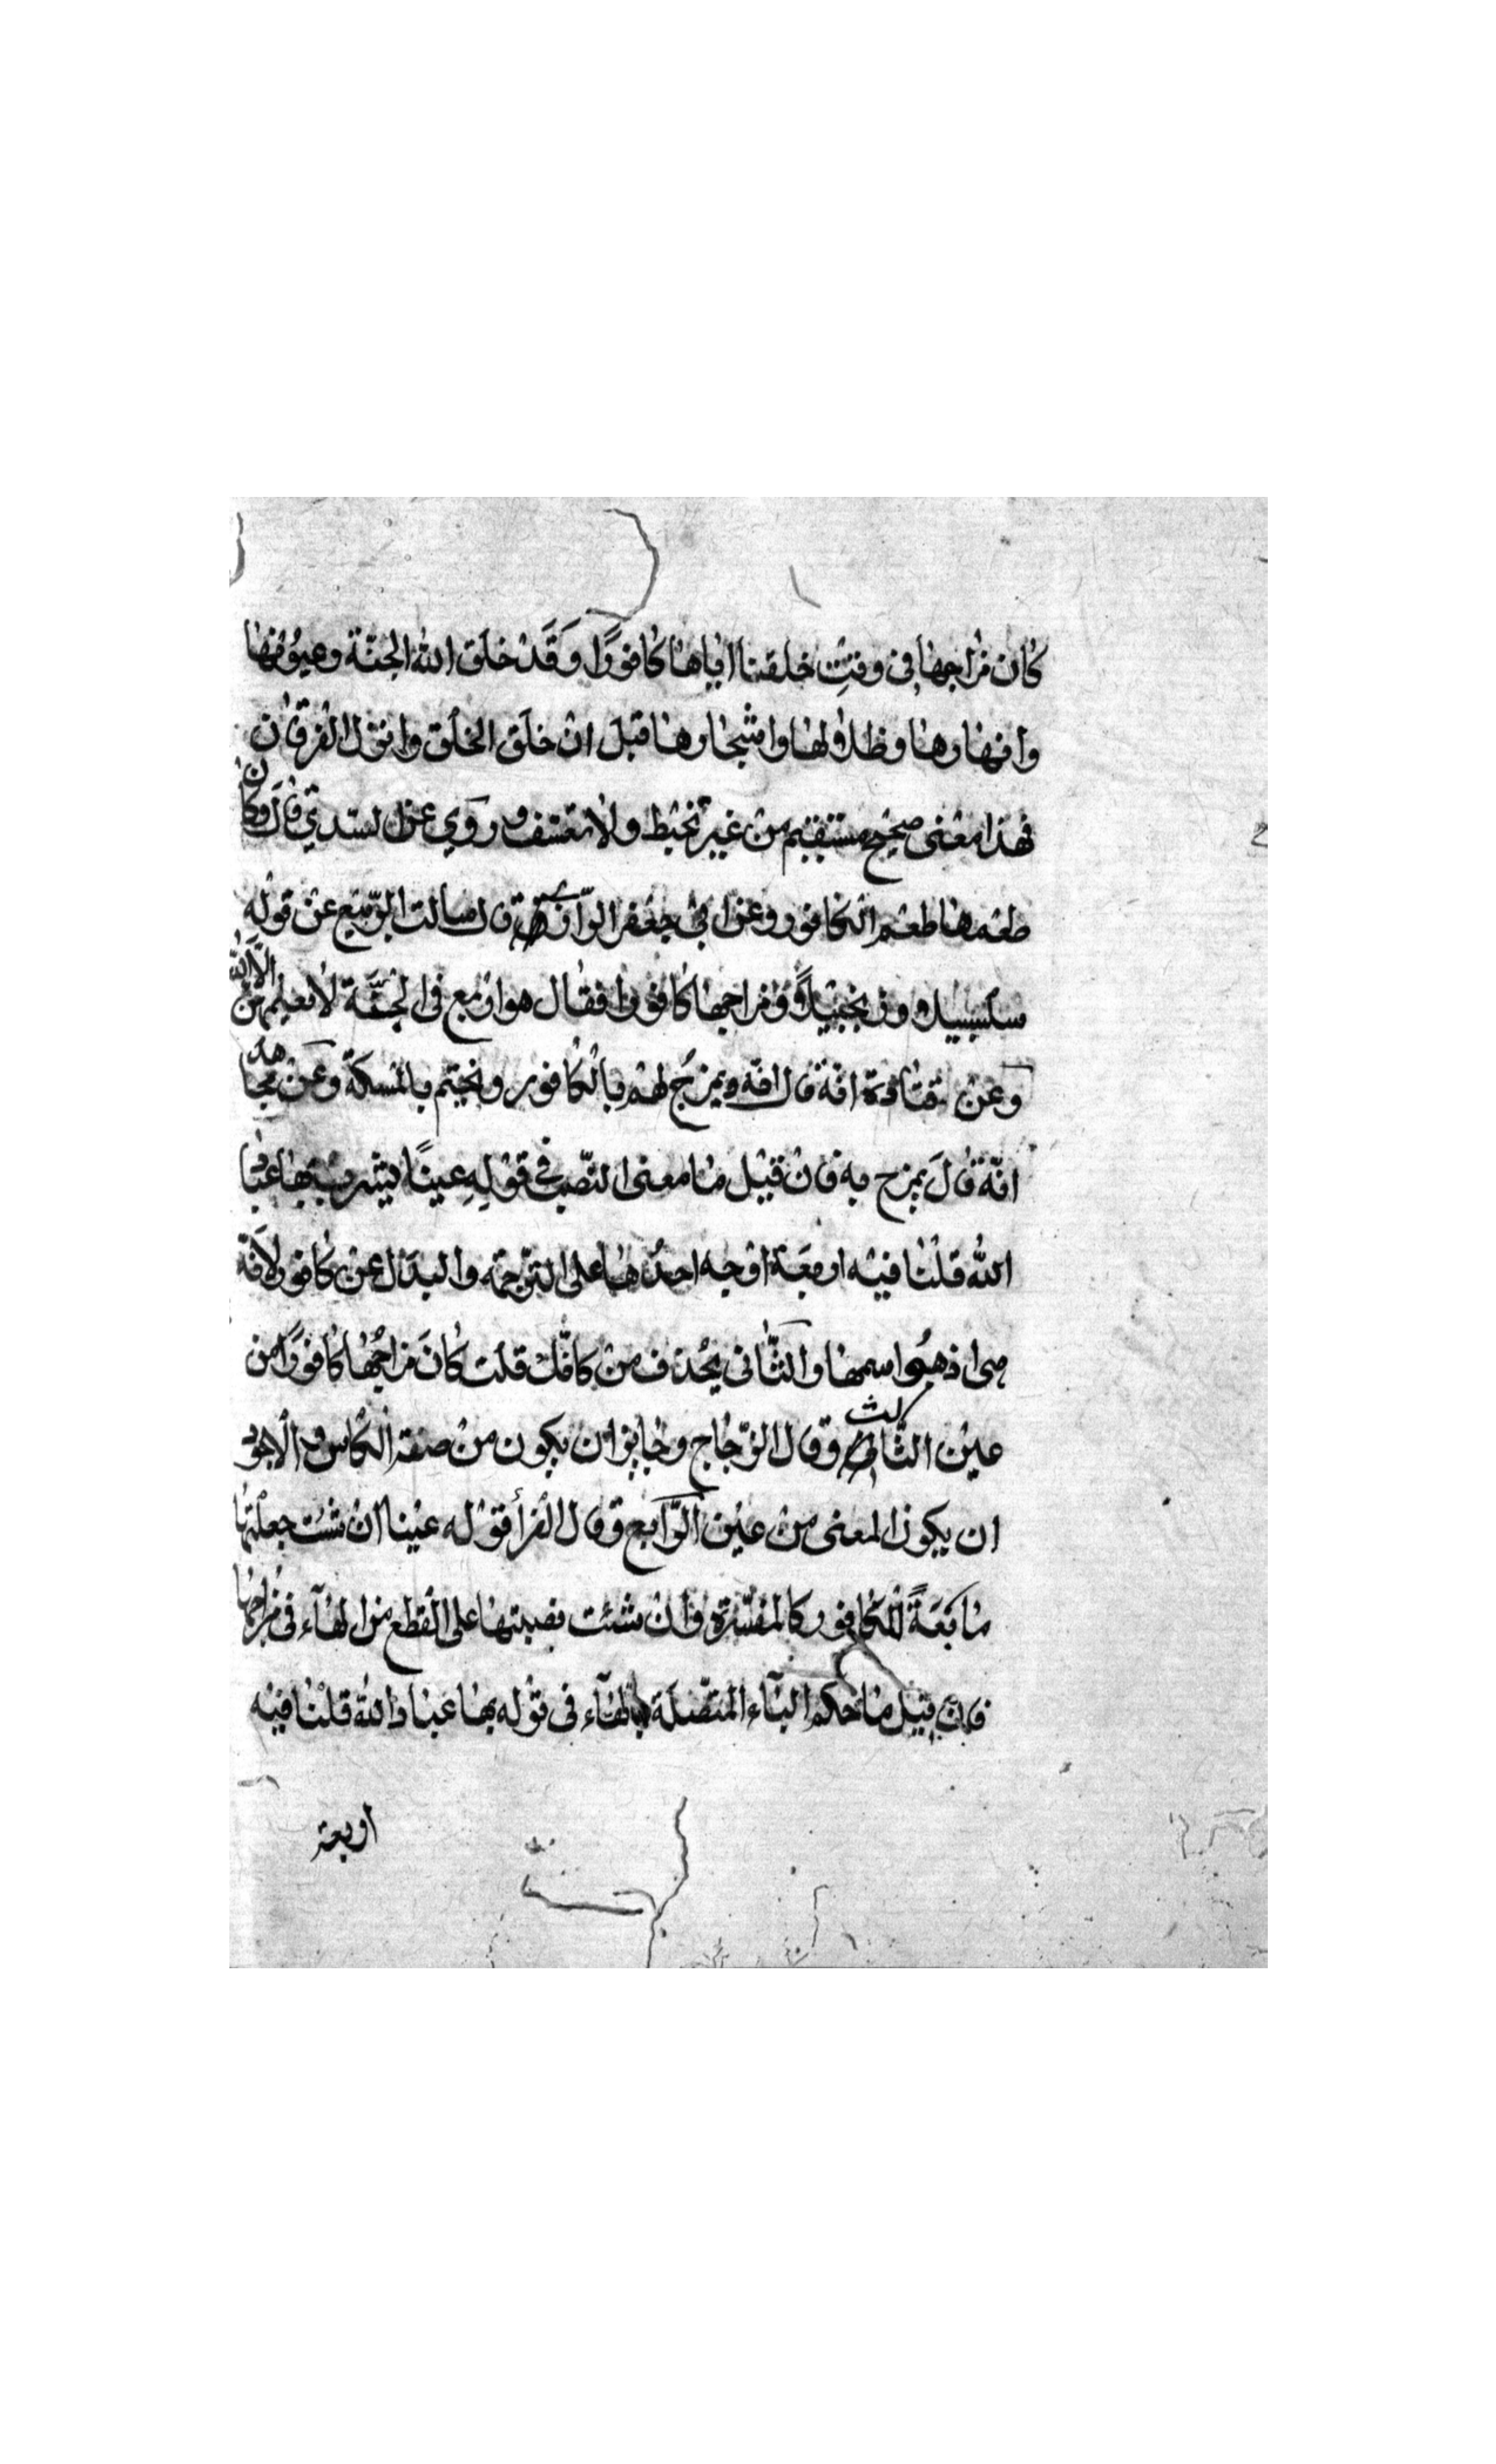 كان مزاجها في وقت خلقنا اياها كافورًا وَقَدْ خلَق الله الجنّة وعيونها
وانهارها وظلالها واشجارها قبلَ ان خلَق الخلق وانزل الفرقان
فهذا معنى صحيح مستقيم من غير تخبط ولا تعسّف وروي عن السدّي قالَ وكان
طعمها طعم الكافور وعن ابي جعفر الرّازي قال سالت الرّبيع عن قوله
سلسبيلا وزنجبيلاً ومزاجها كافورا فقال هو اربع في الجنّة لا يعلمهنّ الّا الله
وعن قتادة انّه قال انّه ويمزجُ لهم بالكافور ويختم بالمسك وعن مجاهد
انّه قالَ يمزج به فان قيل ما معنى النصب في قولِهِ عينًا يشرب بها عباد
الله قلنا فيه اربعَة اوجه احدُها على الترجمة والبدل عن كافور لانّه
اسمها والثّاني يحذف من كانّك قلت كانَ مزاجُها كافورًا من
عين الثّالث وقال الزّجاج وجايز ان يكون من صفة الكاس والاجود
ان يكون المعنى من عين الرّابع وقال الفرأ قوله عينا ان شئت جعلتها
تابعَةً للكافور كالمفسّرة وان شئت نصبتها على القطع من الهآء في مزاجها
فان قيل ما حكم البآء المتصّلة بالهآء في قوله بها عباد الله قلنا فيه
اربعة